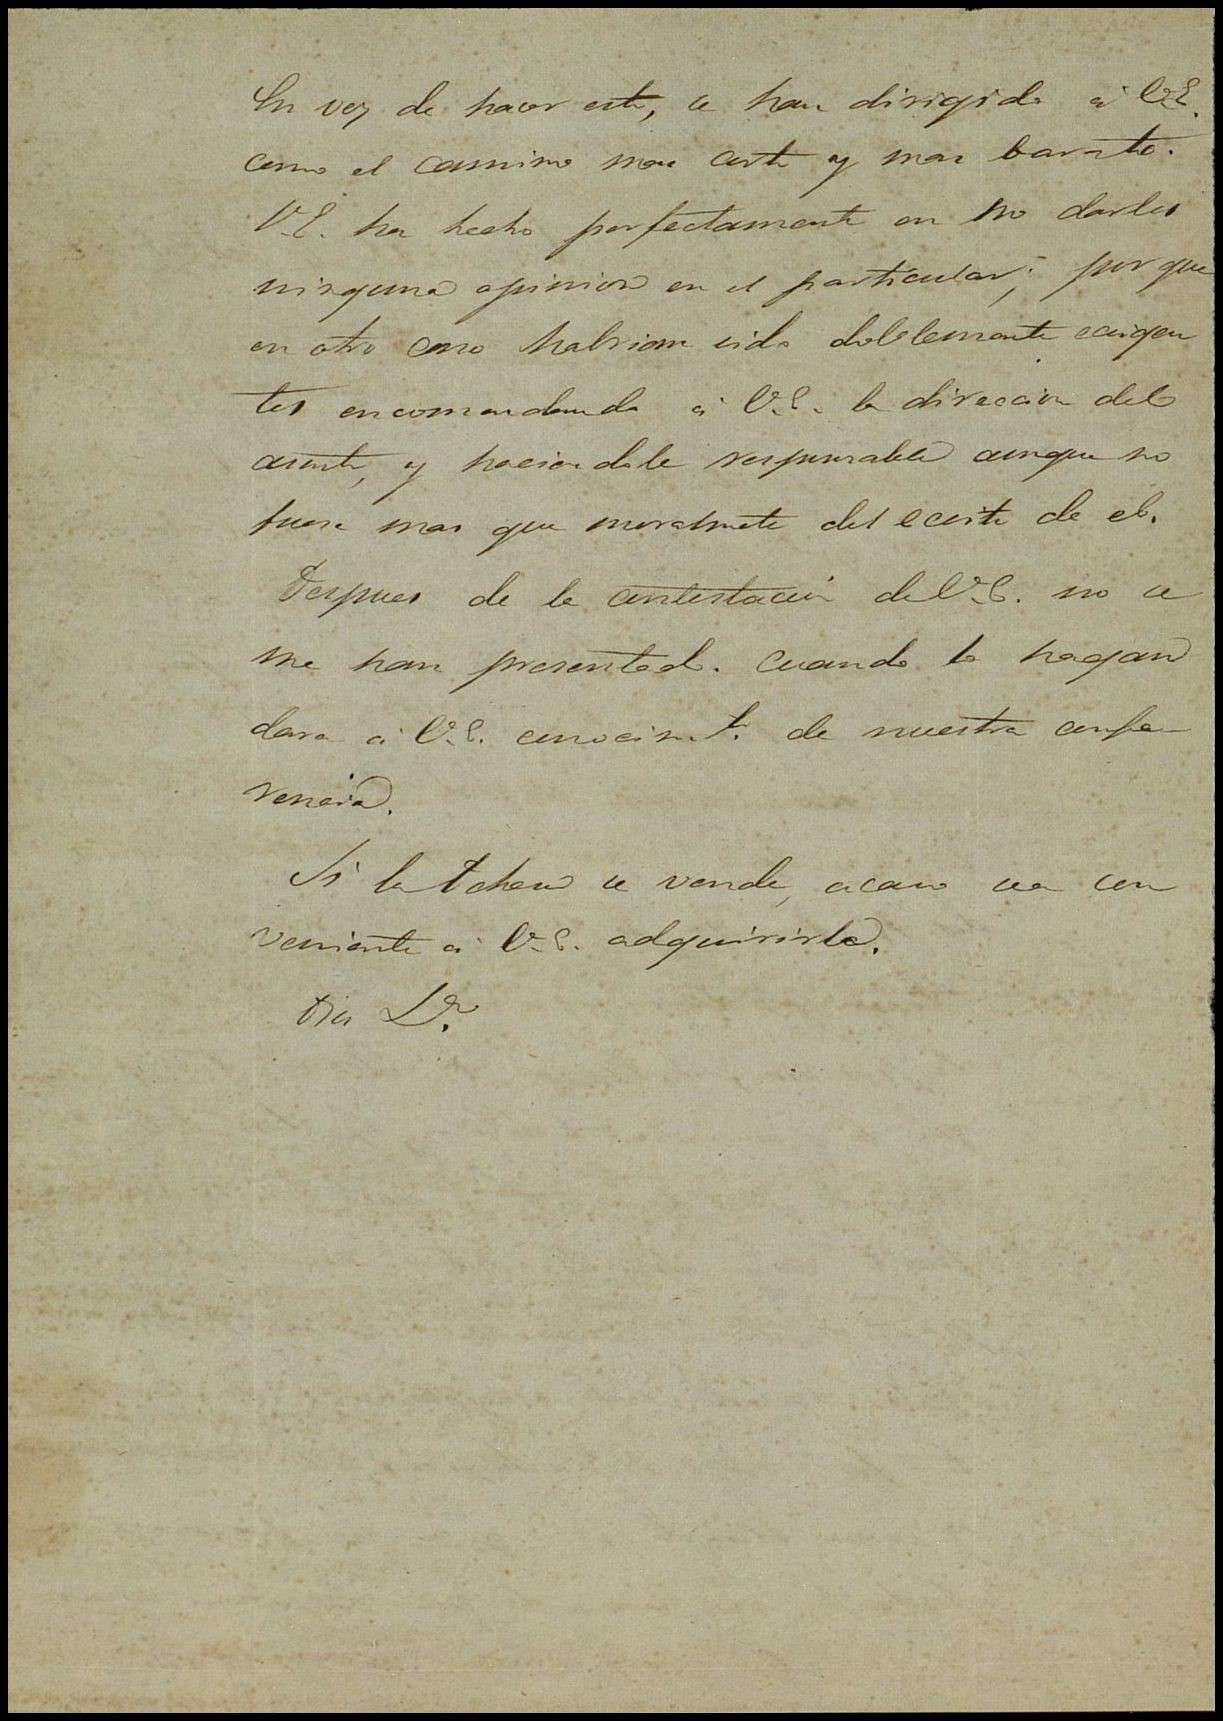 En vez de hacer esto, se han dirigido á V.E.
como el camino mas corto y mas barato.
V.E. ha hecho perfectamente en no darles
ninguna opinion en el particular; por que
en otro caso habrian sido doblemente exigen
tes encomendando á V.E. la direccion del
asunto, y haciendole responsable aunque no
fuera mas que moralmente del exito de el.
Despues de la contestacion de V.E. no se
me han presentado. Cuando lo hagan
dare á V.E. conocimt.º de nuestra confe-
rencia.
Si la se vende, acaso sea con
veniente á V.E. adquirirla.